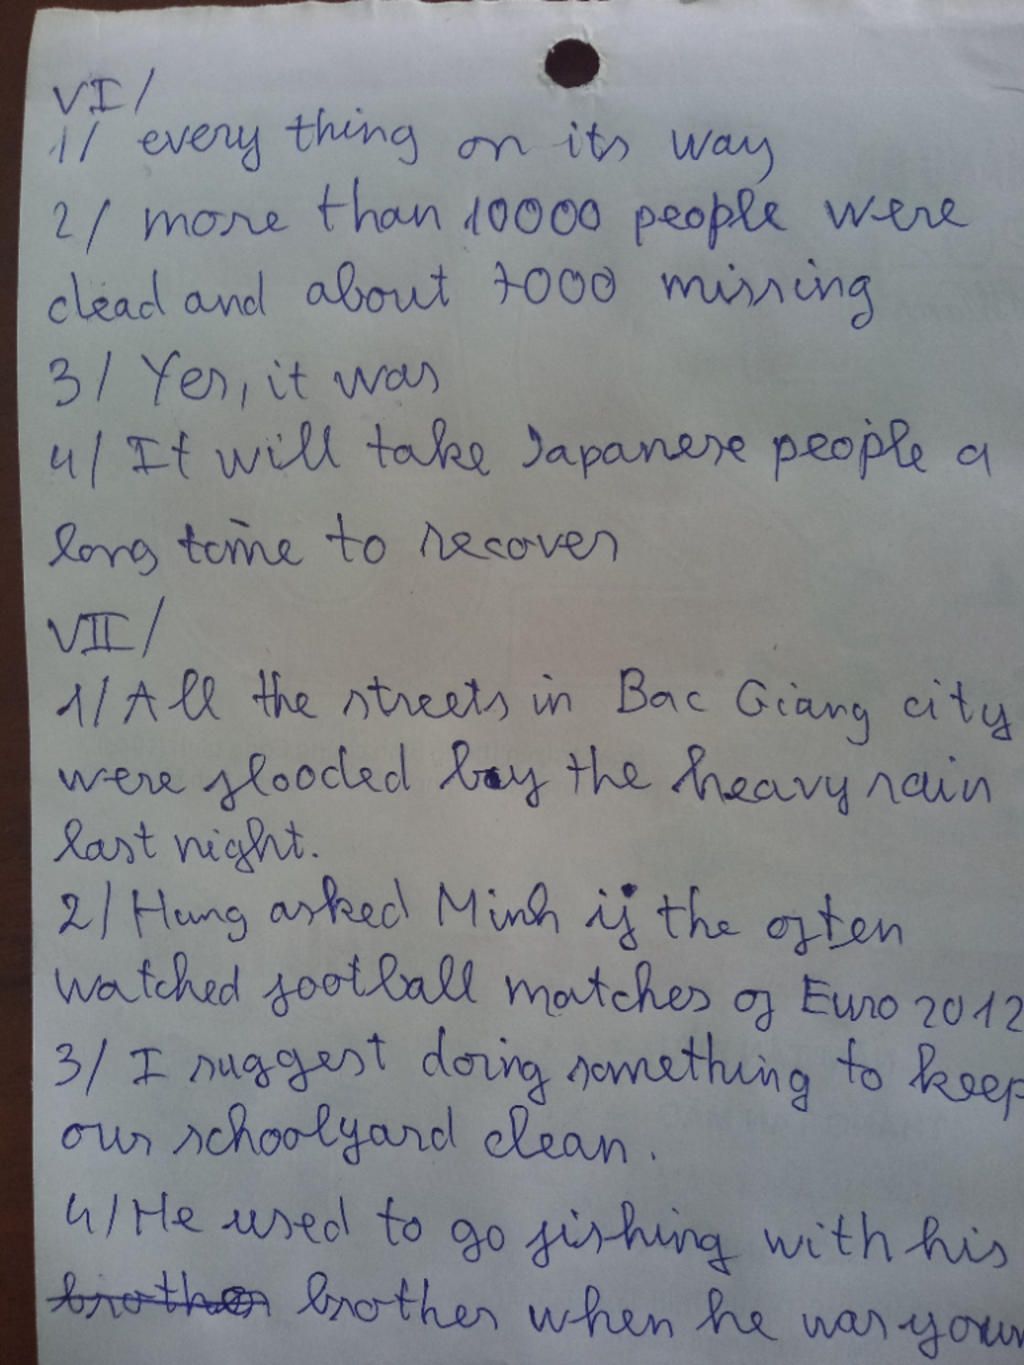 VI/
1/ every thing on its way
2/ more than 10000 people were
dead and about 7000 missing
3/ Yes, it was
4/ It will take Japanese people a
long time to recover
VII/
1/ All the streets in Bac Giang city
were flooded by the heavy rain
last night.
2/ Hung asked Minh if the often
watched football matches of Euro 2012
3/ I suggest doing something to keep
our schoolyard clean.
4/ He used to go fishing with his
brother brother when he was youn